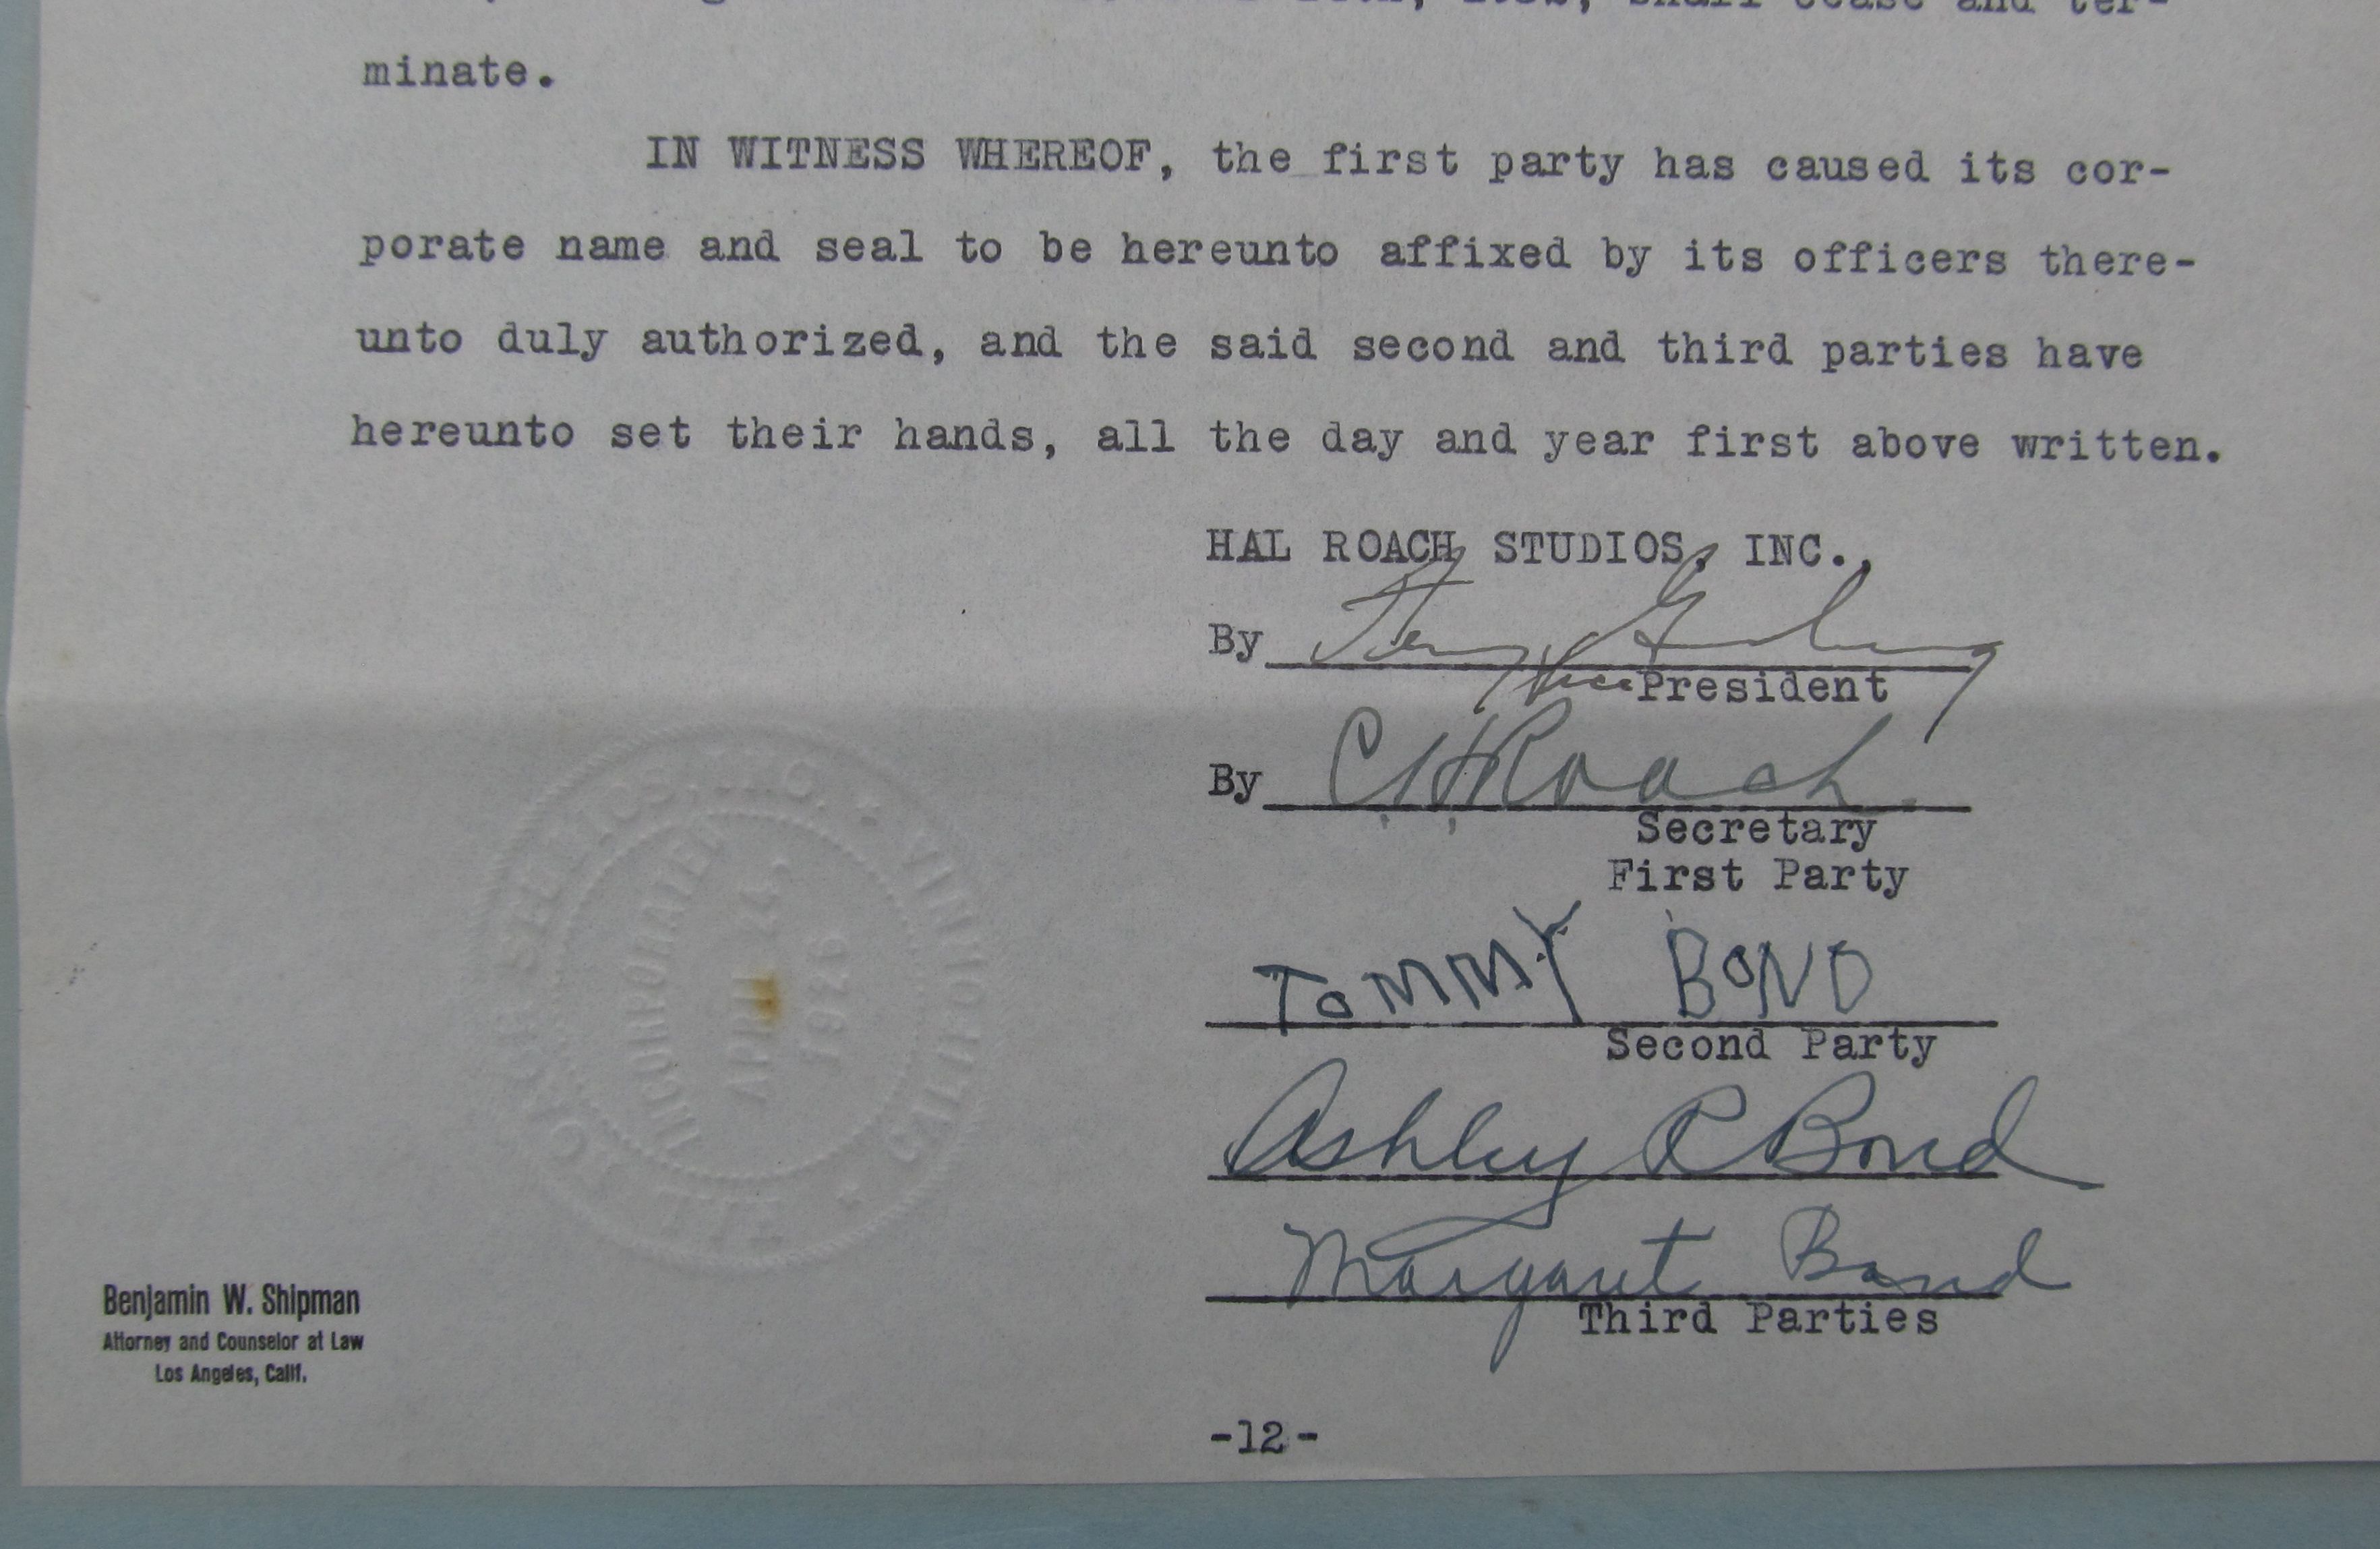 shall cease and ter-
minate.
IN WITNESS WHEREOF, the first party has caused its cor-
porate name and seal to be hereunto affixed by its officers there-
unto duly authorized, and the said second and third parties have
hereunto set their hands, all the day and year first above written.
HAL ROACH STUDIOS, INC.,
By Henry Ginsberg
Vice President
By C H Roach
Secretary
First Party
TOMMY BOND
Second Party
Ashley R Bond
Margaret Bond
Third Parties
HAL ROACH STUDIOS, INC. * CALIFORNIA *
INCORPORATED
APRIL 24,
1926
Benjamin W. Shipman
Attorney and Counselor at Law
Los Angeles, Calif.
-12-